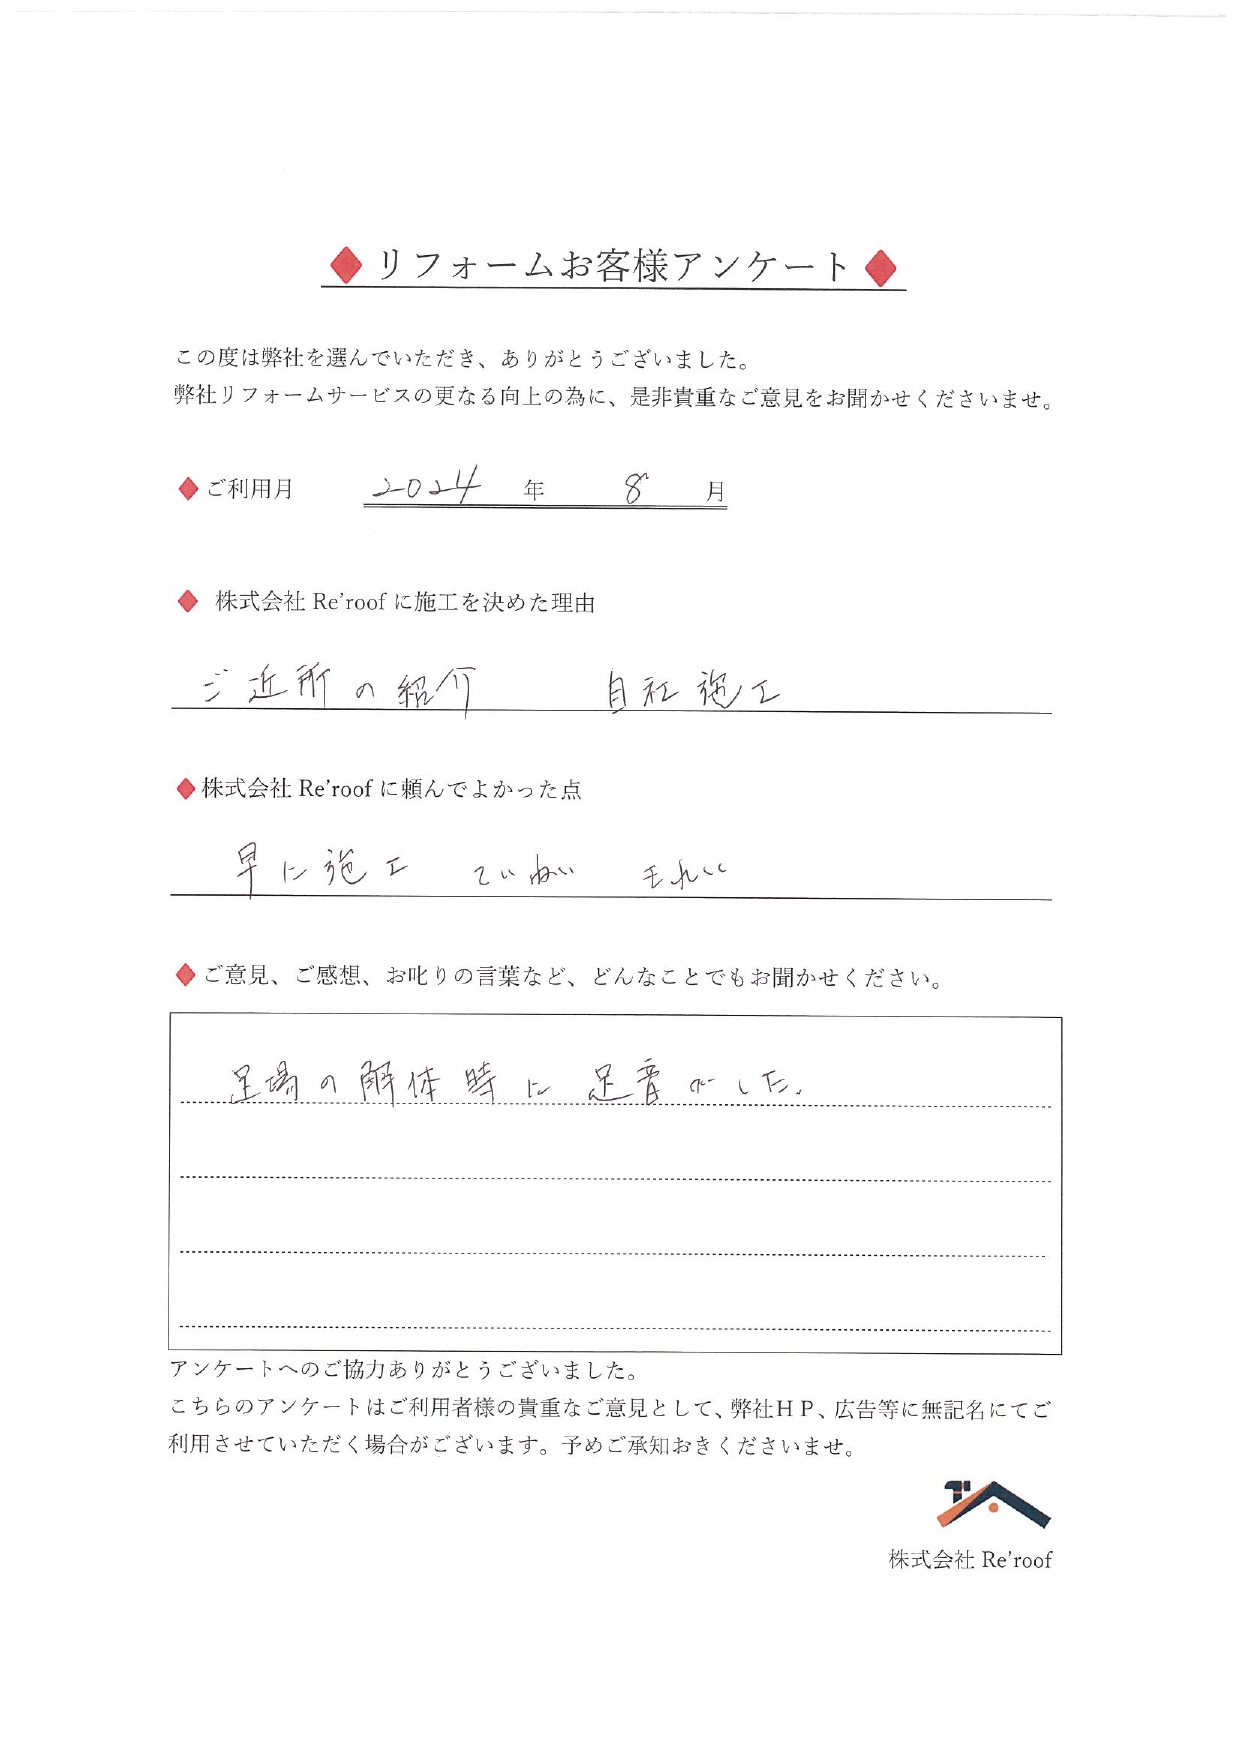 ◆リフォームお客様アンケート◆
この度は弊社を選んでいただき、ありがとうございました。
弊社リフォームサービスの更なる向上の為に、是非貴重なご意見をお聞かせくださいませ。
◆ご利用月 2024 年 8 月
◆ 株式会社 Re'roof に施工を決めた理由
ご近所の紹介 自社施工
◆株式会社 Re'roof に頼んでよかった点
早に施工 ていねい きれい
◆ご意見、ご感想、お叱りの言葉など、どんなことでもお聞かせください。
足場の解体時に足音がした.
アンケートへのご協力ありがとうございました。
こちらのアンケートはご利用者様の貴重なご意見として、弊社HP、広告等に無記名にてご
利用させていただく場合がございます。予めご承知おきくださいませ。
株式会社 Re'roof